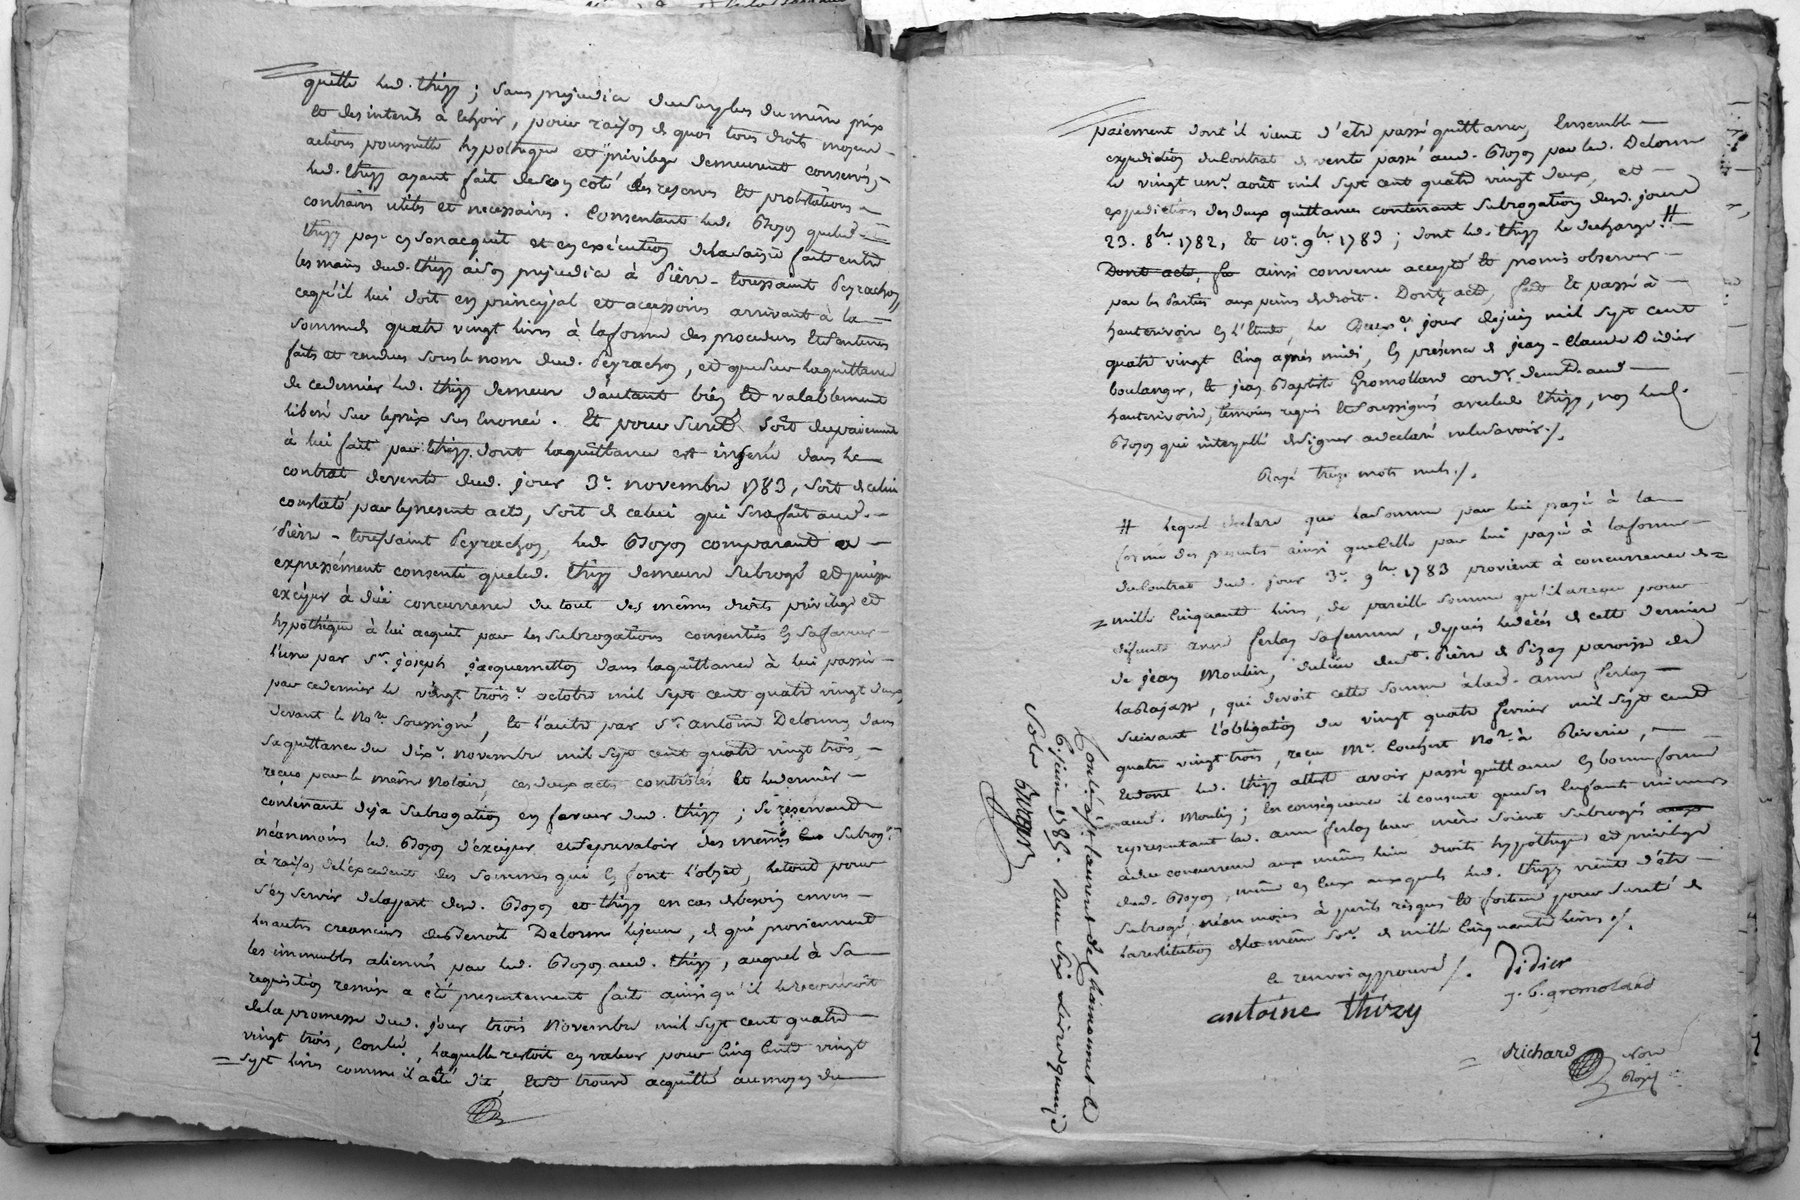 quitte led. thizy ; sans prejudice du surplus du même prix
et des interêts à echoir, pour raison de quoi tous droits moyens
actions poursuitte hypotheque et privilege demeurent conservés,
led. thizy ayant fait de son coté des reserves et protestations
contraires utiles et necessaires. Consentant led. Boyon que led.
thizy paye en son acquit et en exécution de la saisie faite entre
les mains dud. thizy à son prejudice à Pierre-toussaint Peyrachon
ce qu'il lui doit en principal et accessoires arrivant à la
somme de quatre vingt livres à la forme des procedures et sentences
faites et rendues sous le nom dud. Peyrachon, et que sur la quittance
de ce dernier led. thizy demeure d'autant bien et valablement
liberé sur le prix sus enoncé. Et pour sureté soit du paiement
à lui fait par thizy dont la quittance est inserée dans le
contrat de vente dud. jour 3e. novembre 1783, soit de celui
constaté par le present acte, soit de celui qui sera fait aud.
Pierre-toussaint Peyrachon, led. Boyon comparant a
expressément consenti que led. thizy demeure subrogé et puisse
exciper à düe concurrence du tout des mêmes droits privilege et
hypothéque à lui acquis par les subrogations consenties en sa faveur
l'une par Sr. joseph jacquemetton dans la quittance à lui passée
par ce dernier le vingt trois e. octobre mil sept cent quatre vingt deux
devant le Nore. soussigné, et l'autre par Sr. antoine Delorme, dans
sa quittance du dix e. novembre mil sept cent quatre vingt trois,
reçue par le même Notaire, ces deux actes contrôlés et le dernier
contenant deja subrogation en faveur dud. thizy ; se reservant
néanmoins led. Boyon d'exciper et se prevaloir des mêmes subrogons
à raison de l'excedent des sommes qui en font l'objet, le tout pour
s'en servir de la part desd. Boyon et thizy en cas de besoin envers
les autres creanciers de Benoit Delorme lejeune, de qui proviennent
les immeubles alienés par led. Boyon aud. thizy, auquel à sa
requisition remise a été presentement faite ainsi qu'il le reconnoit
de la promesse dud. jour trois Novembre mil sept cent quatre
vingt trois, conlée, laquelle restoit en valeur pour cinq cent vingt
sept livres comme il a été dit, et se trouve acquittée au moyen du
paiement dont il vient d'etre passé quittance, Ensemble
expedition du contrat de vente passé aud. Boyon par led. Delorme
le vingt un e. août mil sept cent quatre vingt deux, et
expedition des deux quittances contenant subrogation desd. jours
23. 8bre. 1782, et 10e. 9bre. 1783 ; dont led. thizy le decharge. #
Dont acte, fa ainsi convenu accepté et promis observer
par les parties aux peines de droit. Dont acte, fait et passé à
hauterivoire en l'etude, le deux e. jour de juin mil sept cent
quatre vingt cinq après midi, en présence de jean-Claude Didier
boulanger, et jean Baptiste Gromollard cordr. demt. aud.
hauterivoire, temoins requis et soussignés avec led. thizy, non led.
Boyon qui interpellé de signer a declaré ne le savoir ./.
Rayé treize mots nuls ./.
# lequel declare que la somme par lui payée à la
forme des presentes ainsi que celle par lui payée à la forme
du contrat dud. jour 3e. 9bre. 1783 provient à concurrence de
mille cinquante livres, de pareille somme qu'il a reçue pour
défunte anne ferlay sa femme, depuis le décès de cette derniere
de jean Moulin, du lieu de St. Pierre de Pizay paroisse de
la Rajasse, qui devoit cette somme à lad. anne ferlay
suivant l'obligation du vingt quatre fevrier mil sept cent
quatre vingt trois, reçu Me. Couhert Nore. à Riverie,
et dont led. thizy atteste avoir passé quittance en bonne forme
aud. Moulin ; en conséquence il consent que ses enfants mineurs
representant lad. anne ferlay leur mère soient subrogés aux
à düe concurrence aux mêmes lieu droits hypothéque et privilege
dud. Boyon, même en ceux auxquels led. thizy vient d'être
subrogé néanmoins à perils risques et fortune pour sureté de
la restitution de la même some. de mille cinquante livres ./.
le renvoi approuvé ./. Didier
j. b. gromolard
antoine thizy
Richard Nore
Royal
Contlé. à St. laurent de Chamousset le
6. juin 1785. Reçu six livres quinze s.
Sold